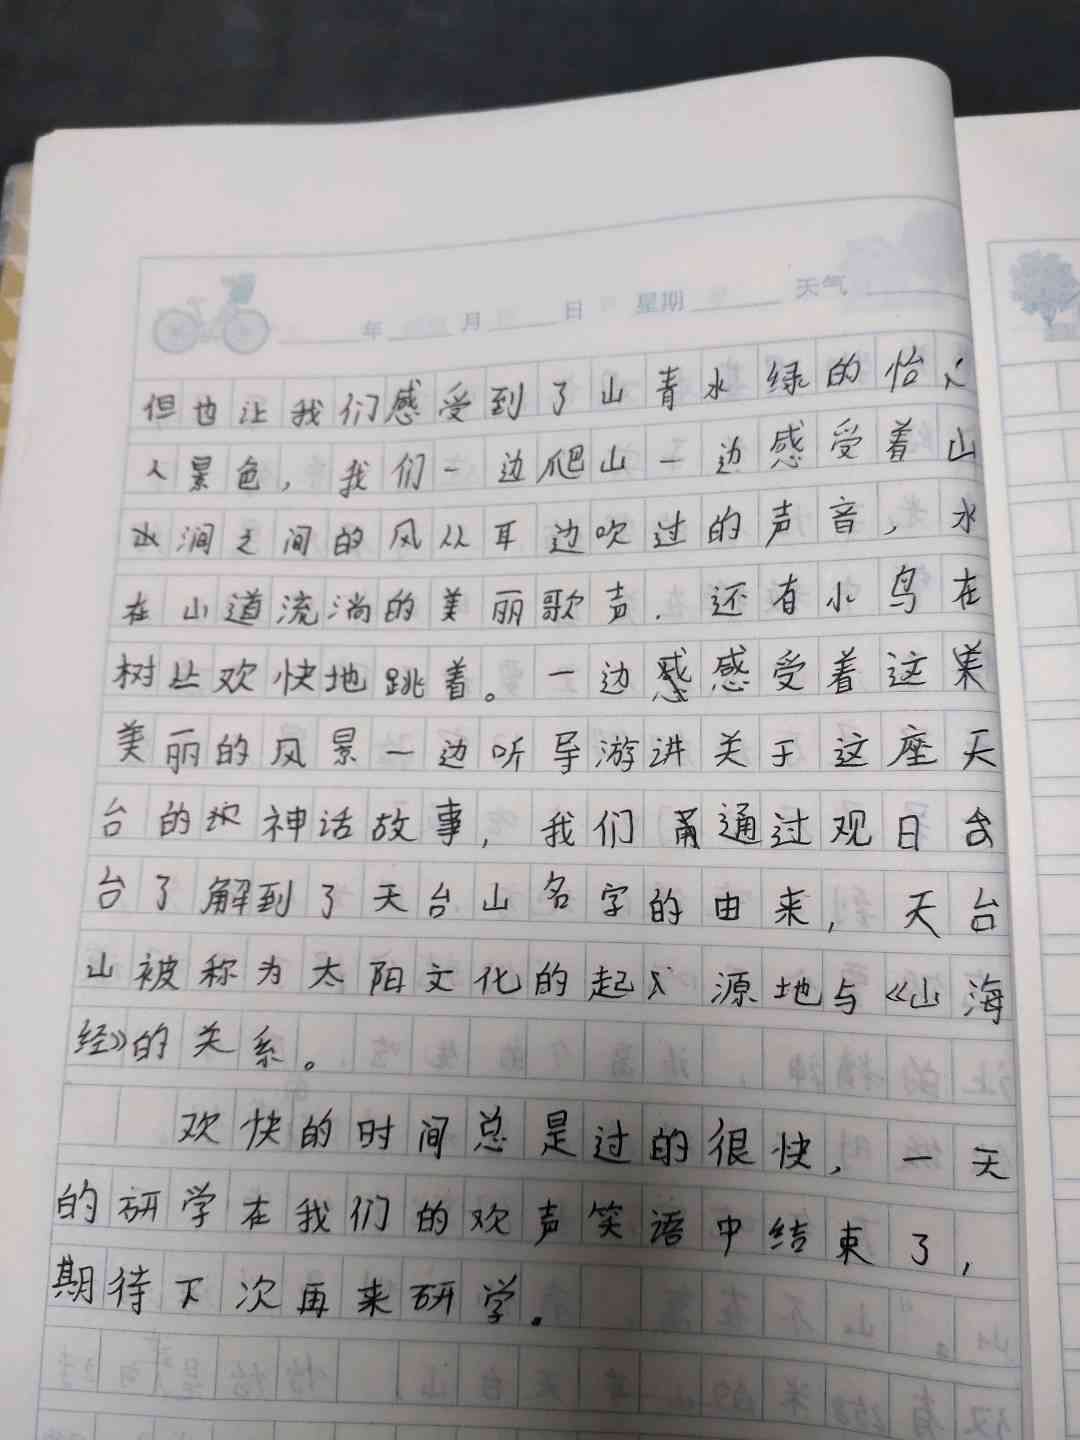 年 月 日 星期 天气
但也让我们感受到了山青水绿的怡
人景色，我们一边爬山一边感受着山
涧之间的风从耳边吹过的声音，水
在山道流淌的美丽歌声．还有小鸟在
树丛欢快地跳着。一边感受着这
美丽的风景一边听导游讲关于这座天
台的神话故事，我们通过观日
台了解到了天台山名字的由来，天台
山被称为太阳文化的起源地与《山海
经》的关系。
欢快的时间总是过的很快，一天
的研学在我们的欢声笑语中结束了，
期待下次再来研学。